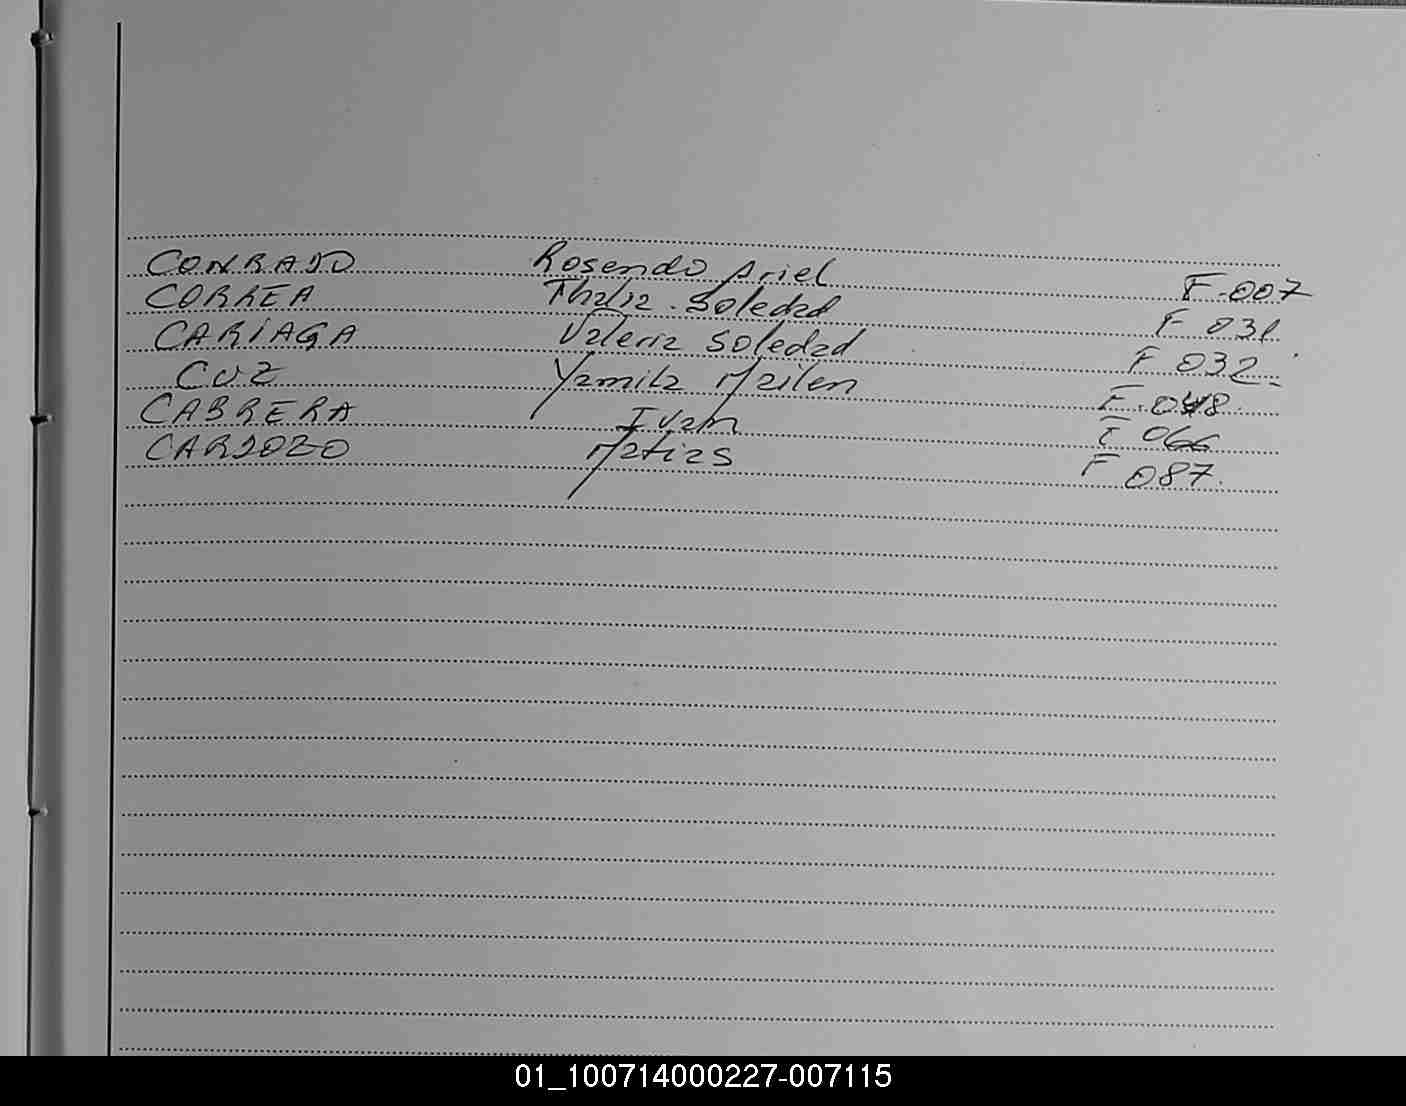 CONRADO Rosendo Ariel F-007
CORREA Thalia Soledad F 031
CARIAGA Valeria Soledad F 032
CUZ Yamila Mailen F.048
CABRERA Ivan F 066
CARDOZO Matias F 087
01_100714000227-007115